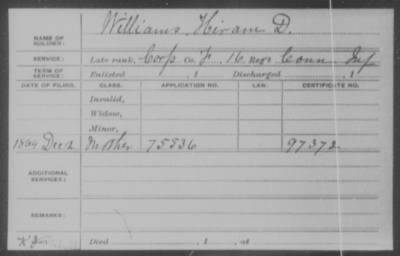 Williams, Hiram D.
NAME OF SOLDIER:
SERVICE: Late rank, Corp Co. F, 16 Reg't Conn Inf
TERM OF SERVICE: Enlisted , 1 Discharged , 1
DATE OF FILING. CLASS. APPLICATION NO. LAW. CERTIFICATE NO.
Invalid,
Widow,
Minor,
1864 Dec 2 Mother 75536 97372
ADDITIONAL SERVICES:
REMARKS:
Died , 1 , at